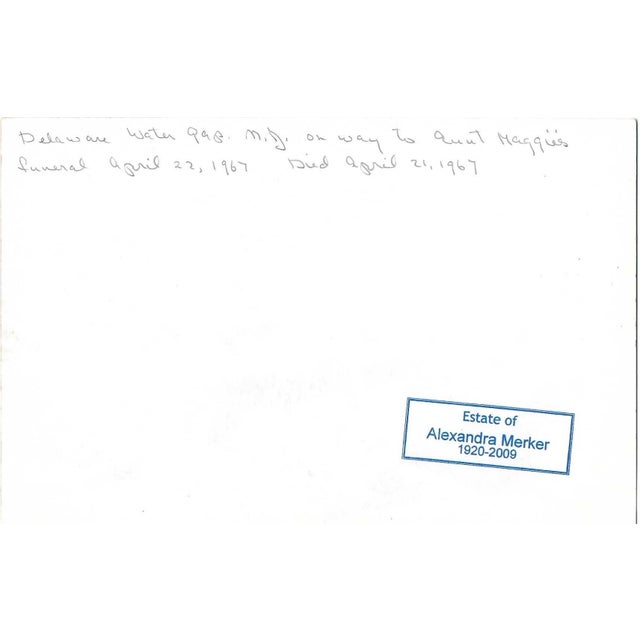 Delaware Water Gap. N.J. on way to Aunt Maggie's
funeral April 22, 1967 Died April 21, 1967
Estate of
Alexandra Merker
1920-2009